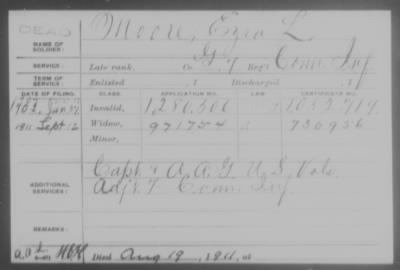 DEAD
NAME OF SOLDIER: Moore, Ezra L.
SERVICE: Late rank, Co. G, 7 Reg't Conn. Inf.
TERM OF SERVICE: Enlisted , 1 Discharged , 1
DATE OF FILING. CLASS. APPLICATION NO. LAW CERTIFICATE NO.
1902, Jan Invalid, 1,280,300 1,052,719
1911 Sept 12 Widow, 971754 730956
Minor,
ADDITIONAL SERVICES: Capt & A.A.G. U.S. Vols.
Adj't 7 Conn. Inf
REMARKS:
Died Aug 19, 1911, at